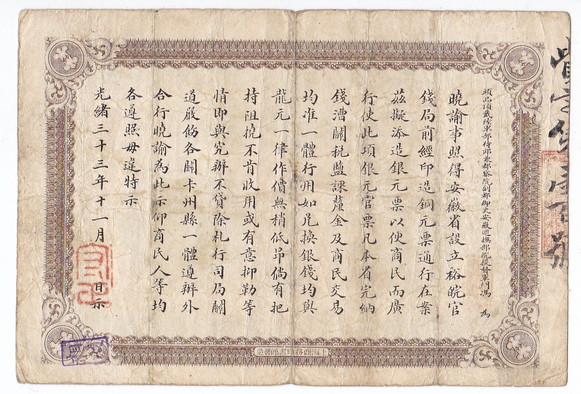 曉諭事照得安徽省設立裕皖官
錢局前經印造銅元票通行在案
茲擬添造銀元票以便商民而廣
行使此項銀元官票凡本省完納
錢漕關稅監課釐金及商民交易
均准一體行用如兌換銀錢均與
龍元一律作價無稍低昂倘有把
持阻撓不肯收用或有意抑勒等
情即與究辦不貸除札行司局關
道嚴飭各關卡州縣一體遵辦外
合行曉諭為此示仰商民人等均
各遵照毋違特示
光緒三十三年十一月 日示